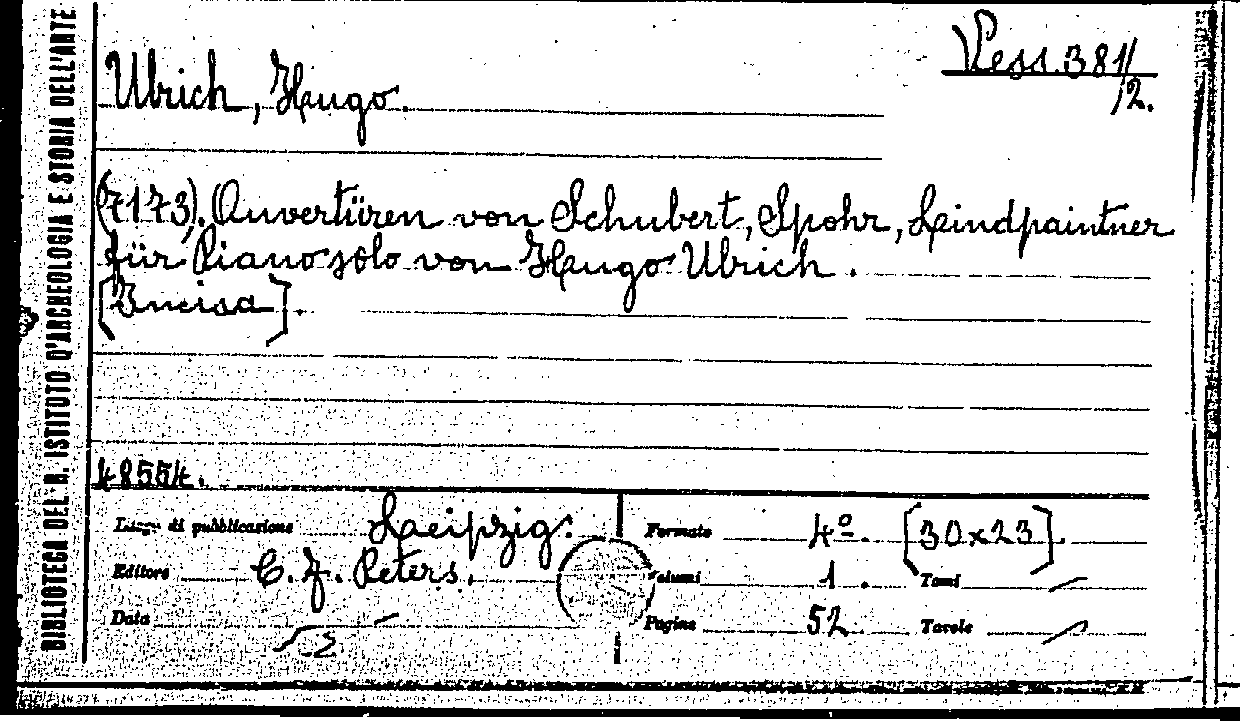 BIBLIOTECA DEL R. ISTITUTO D'ARCHEOLOGIA E STORIA DELL'ARTE
Vess. 381/2.
Ulrich, Hugo.
(7173). Ouvertüren von Schubert, Spohr, Lindpaintner
für Piano solo von Hugo Ulrich.
[Incisa].
48554.
Luogo di pubblicazione Leipzig.
Editore C. F. Peters.
Data
Formato 4º. [30x23].
Volumi 1. Tomi /
Pagine 52 Tavole /